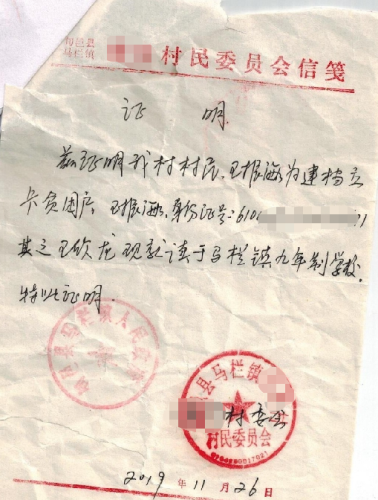 旬邑县
马栏镇 村民委员会信笺
证 明
兹证明我村村民，王振海为建档立
卡贫困户，王振海，身份证号：610 11
其之王欣龙现就读于马栏镇九年制学校，
特此证明．
县马栏镇人民政府
县马栏镇
村委会
村民委员会
2019 年 11 月 26 日